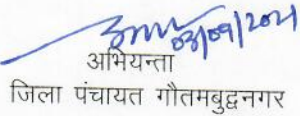 03/09/2021
अभियन्ता
जिला पंचायत गौतमबुद्वनगर